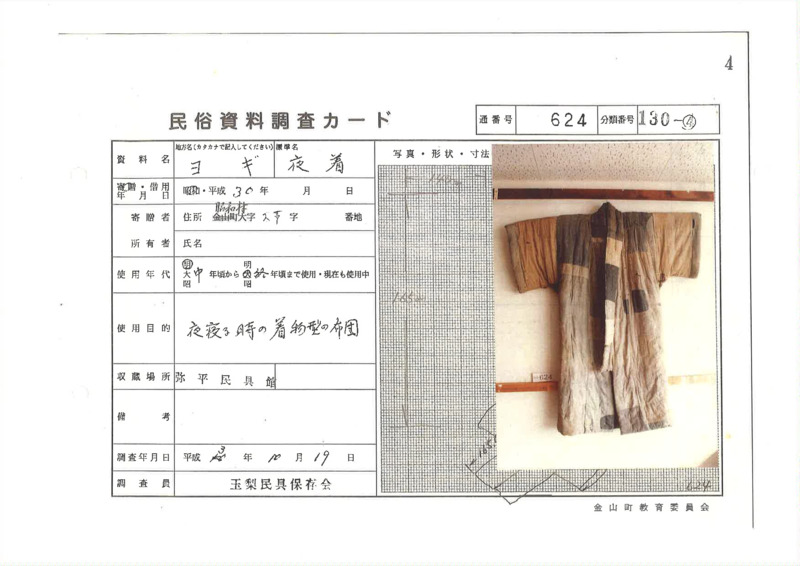 4
民俗資料調査カード
通番号 624 分類番号 130-④
資料名 地方名(カタカナで記入してください) ヨギ 標準名 夜着
写真・形状・寸法
寄贈・借用年月日 昭和・平成 30年 月 日
寄贈者 住所 金山町大字 字 番地
所有者 氏名
使用年代 明 大 昭 中 年頃から 明 大 昭 終 年頃まで使用・現在も使用中
使用目的 夜寝る時の着物型の布団
収蔵場所 弥平民具館
備考
調査年月日 平成 3年 10月 19日
調査員 玉梨民具保存会
140cm
165cm
624
624
金山町教育委員会